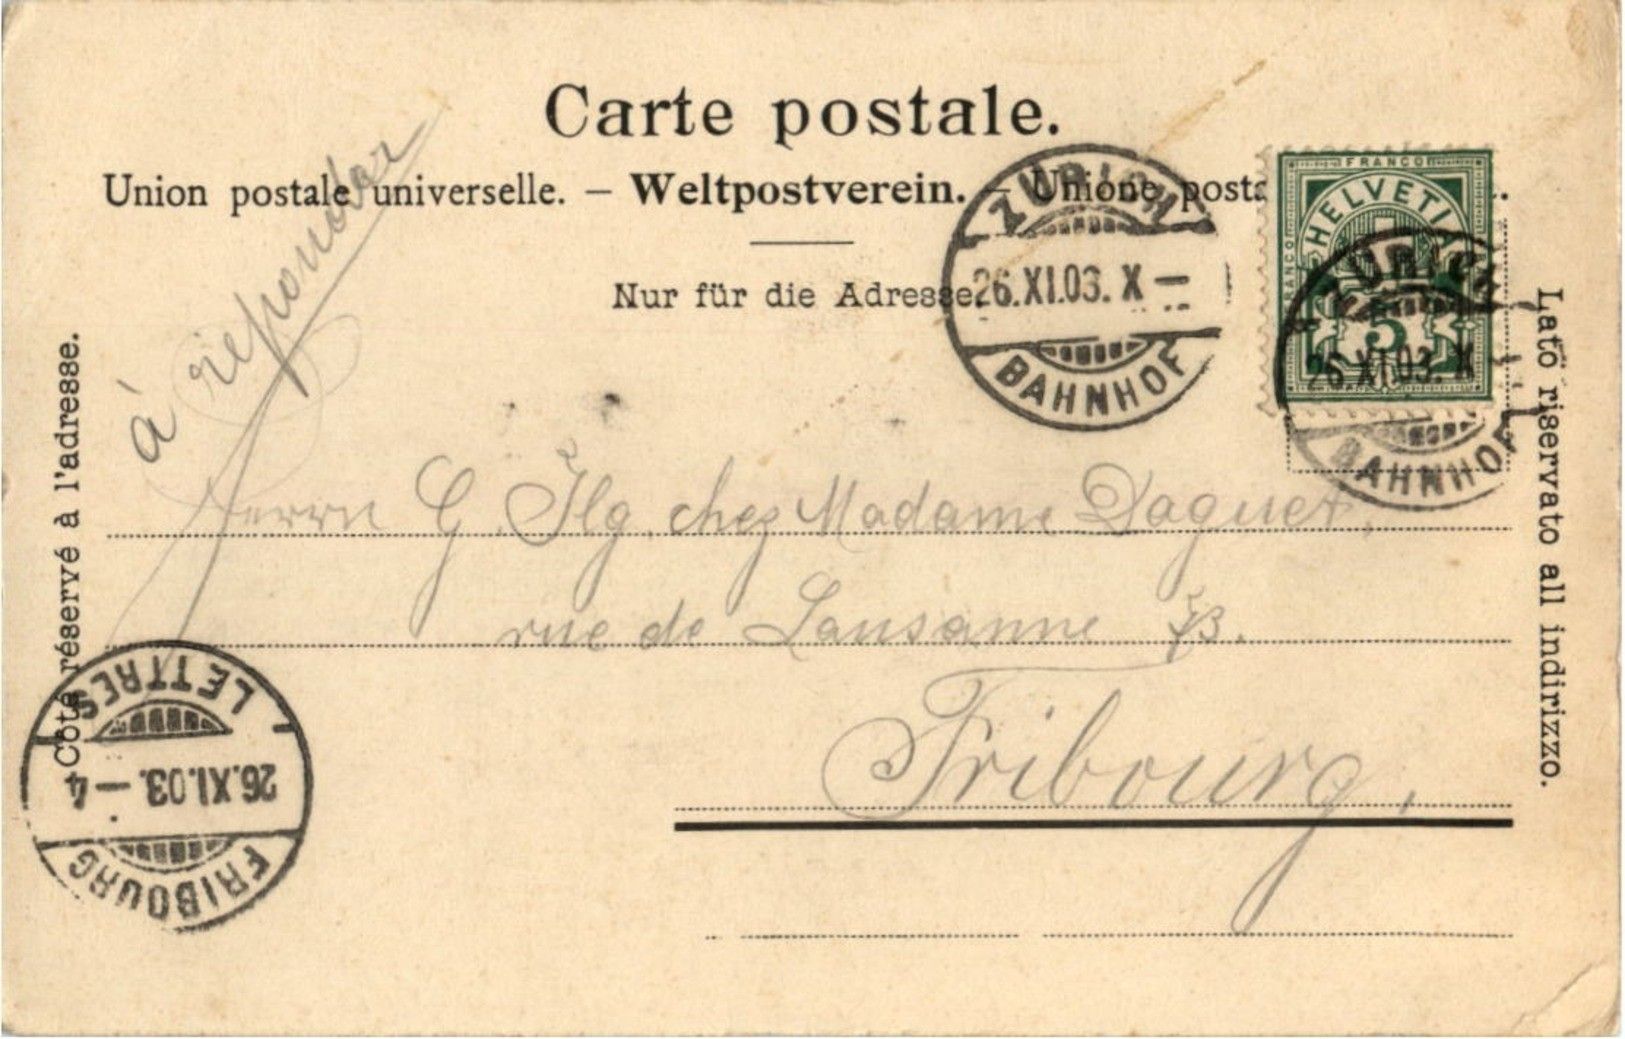 Carte postale.
Union postale universelle. – Weltpostverein. – Unione posta
Nur für die Adresse.
Côté réservé à l'adresse.
Lato riservato all indirizzo.
à répondu
ZÜRICH
26.XI.03. X –
BAHNHOF
FRANCO
FRANCO
HELVETIA
5
ZÜRICH
26.XI.03. X –
BAHNHOF
Herrn G. Ilg. chez Madame Daguet,
rue de Lausanne
Fribourg.
LETTRES
26.XI.03. – 4
FRIBOURG